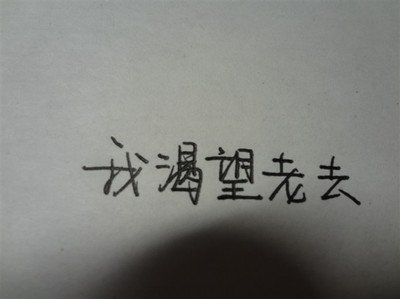 我渴望老去